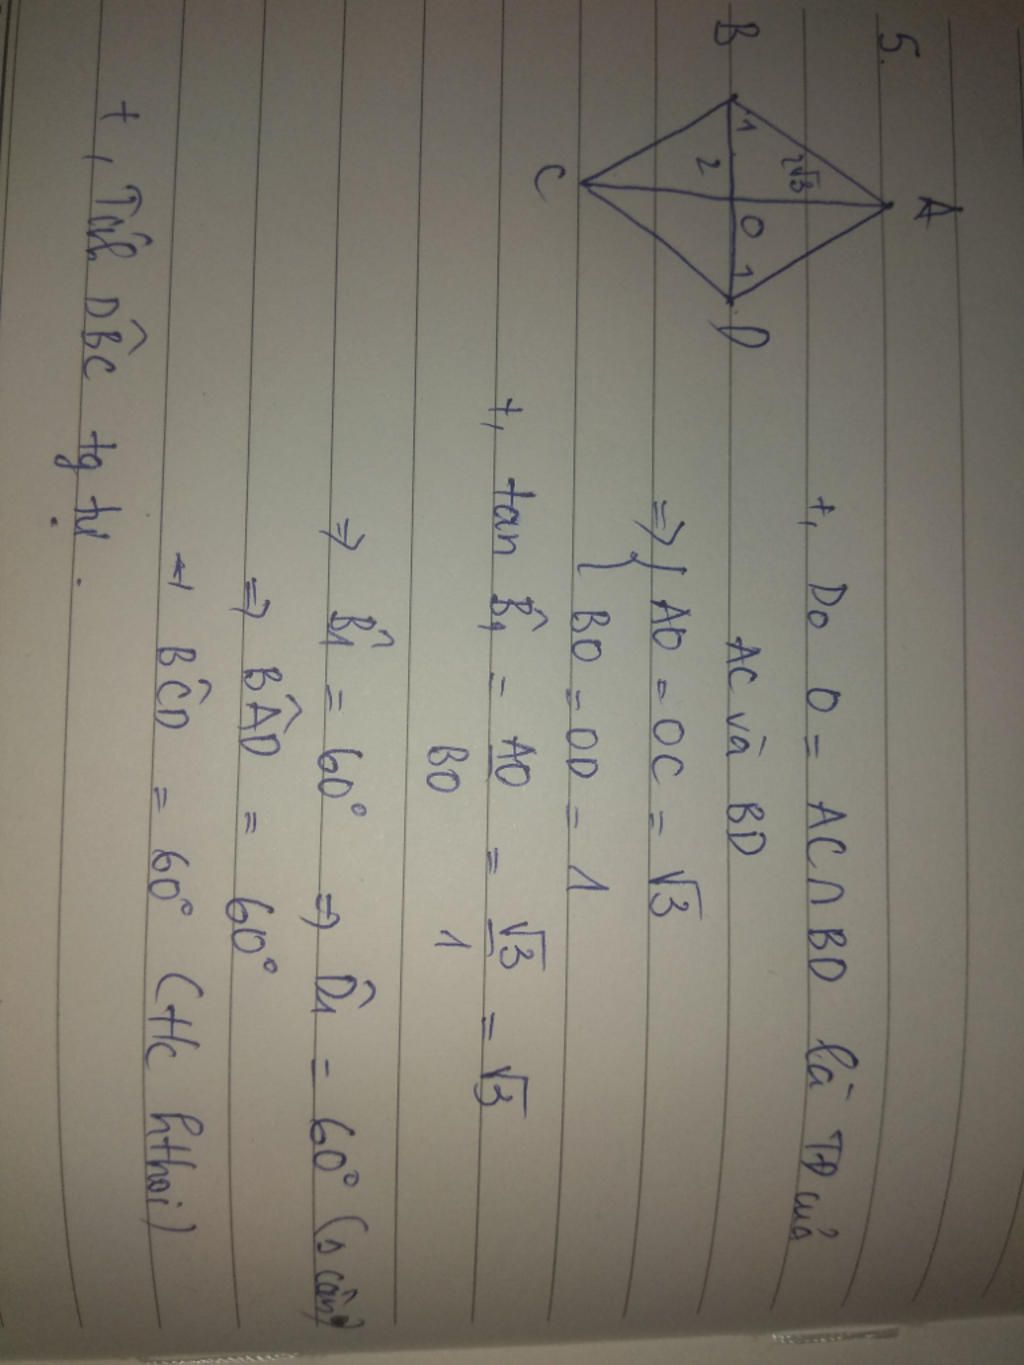 5.
A
B
2√3
1
O
1
2
D
C
+, Do O = AC ∩ BD là TĐ của
AC và BD
=> { AO = OC = √3
BO = OD = 1
+, tan B̂₁ = AO/BO = √3/1 = √3
=> B̂₁ = 60° => D̂₁ = 60° (Δ cân)
=> BÂD = 60°
→ BĈD = 60° (t/c hthoi)
+, Tính DB̂C tg tự.